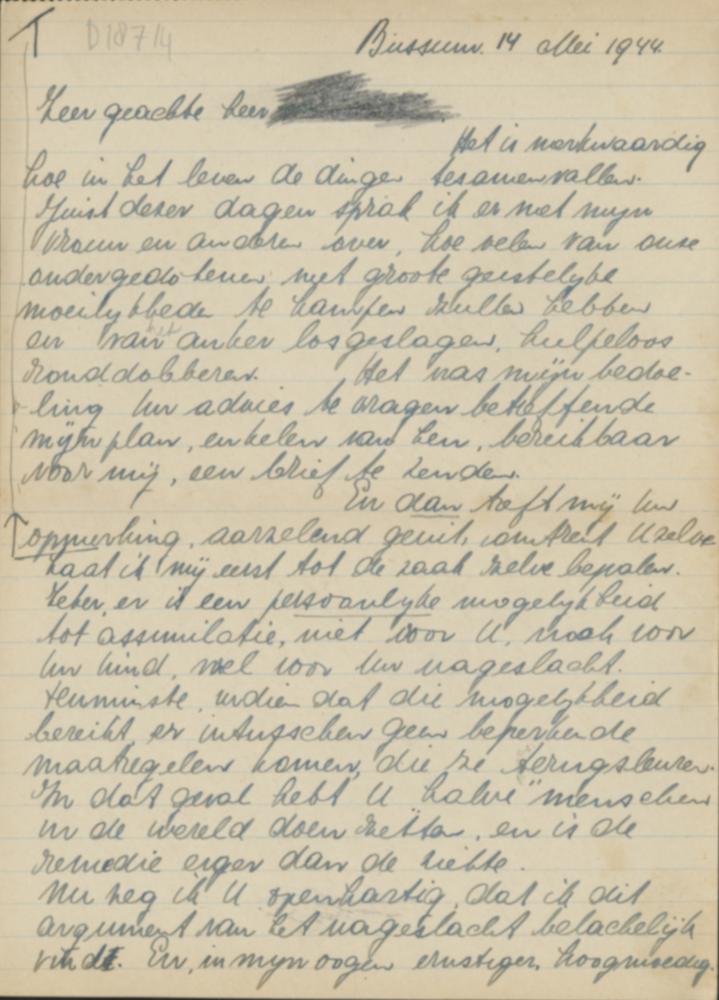 D1874
Bussum. 14 Mei 1944.
Zeer geachte heer
Het is merkwaardig
hoe in het leven de dingen tesamenvallen.
Juist dezer dagen sprak ik er met mijn
vrouw en anderen over, hoe velen van onze
ondergedokenen met groote geestelyke
moeilykheden te kampen zullen hebben
en van het anker losgeslagen, hulpeloos
ronddobberen. Het was mijn bedoe-
ling Uw advies te vragen betreffende
mijn plan, enkelen van hen, bereikbaar
voor mij, een brief te zenden.
En dan treft mij Uw
opmerking, aarzelend geuit, omtrent Uzelve
Laat ik mij eerst tot de zaak zelve bepalen.
Zeker, er is een persoonlyke mogelykheid
tot assimilatie, niet voor U, noch voor
Uw kind, wel voor Uw nageslacht.
Tenminste, indien dat die mogelykheid
bereikt, er intusschen geen beperkende
maatregelen komen, die ze terugsleuren.
In dat geval hebt U "halve" menschen
in de wereld doen zetten, en is de
remedie erger dan de ziekte.
Nu zeg ik U openhartig, dat ik dit
argument van het nageslacht belachelijk
vindt. En, in myn oogen ernstiger, hoogmoedig.